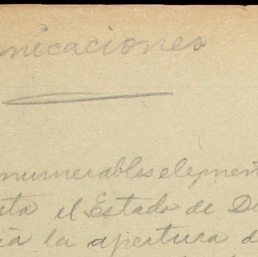 nicaciones
numerables element
sta el Estado de Du
ia la apertura d